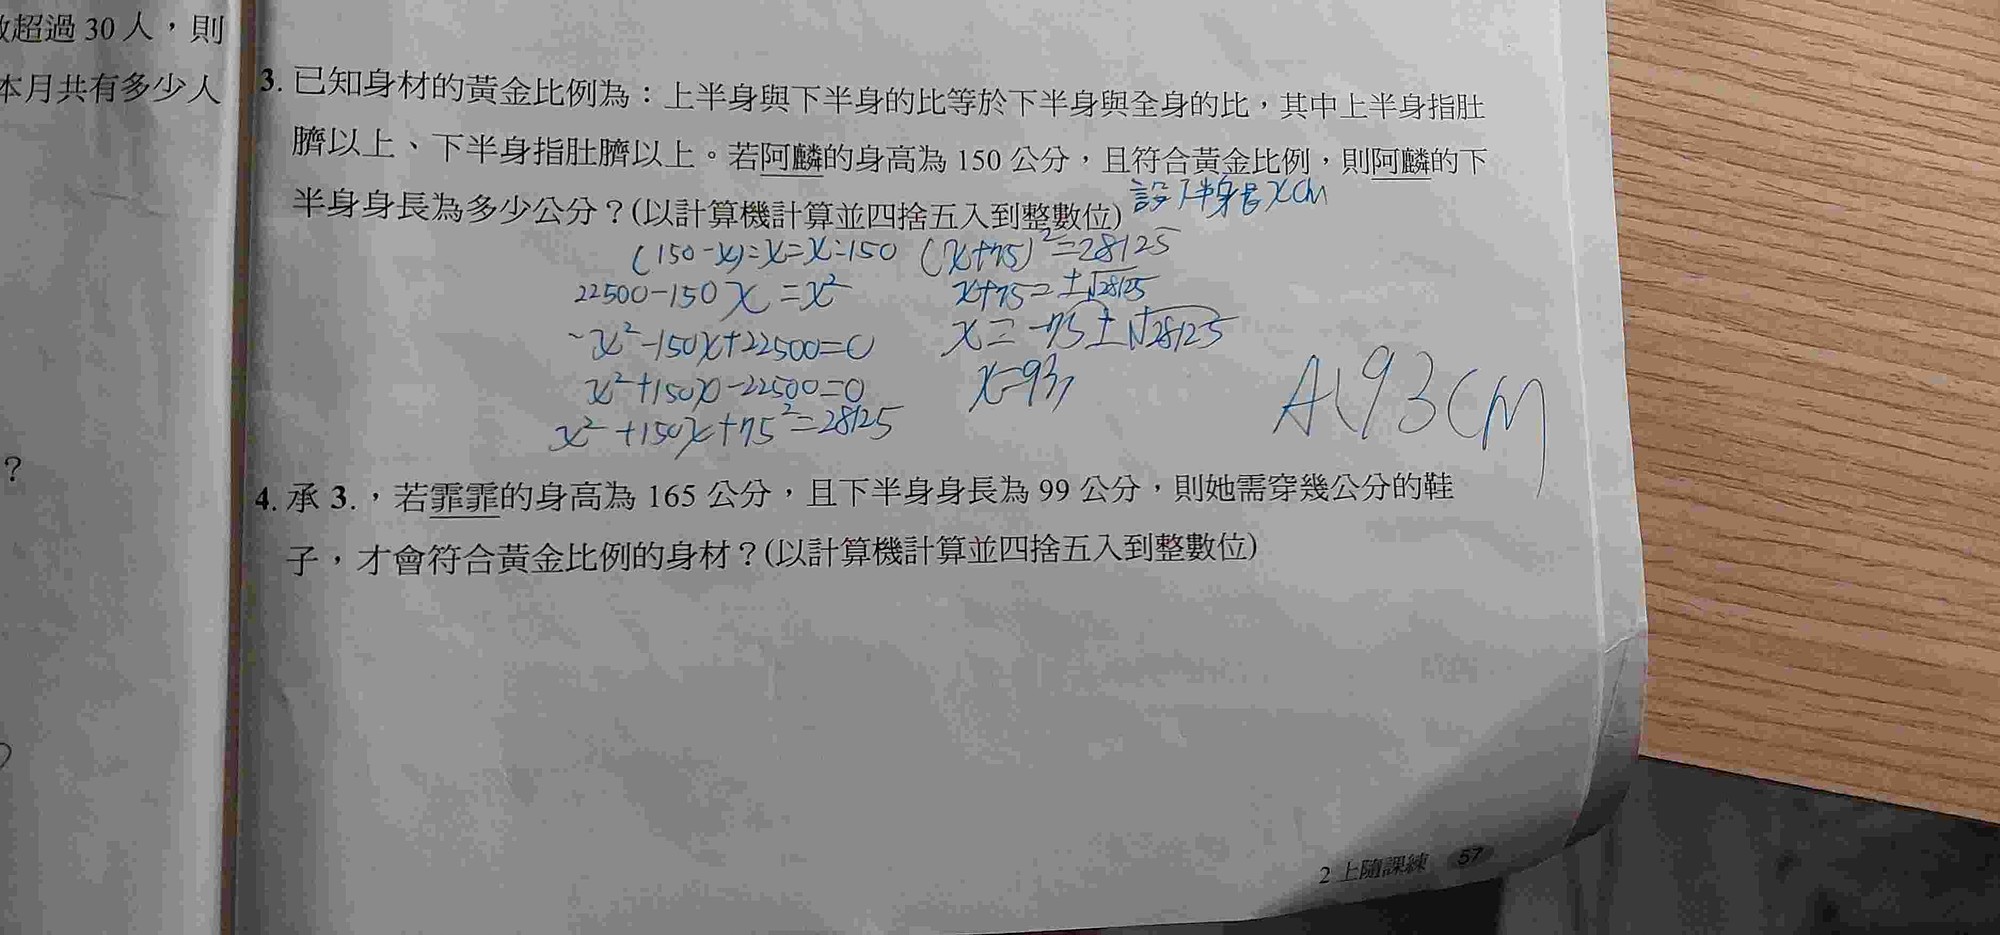 數超過 30 人，則
本月共有多少人
?
3. 已知身材的黃金比例為：上半身與下半身的比等於下半身與全身的比，其中上半身指肚
臍以上、下半身指肚臍以上。若阿麟的身高為 150 公分，且符合黃金比例，則阿麟的下
半身身長為多少公分？(以計算機計算並四捨五入到整數位)
設下半身長xcm
(150-x):x=x:150
22500-150x=x²
-x²-150x+22500=0
x²+150x-22500=0
x²+150x+75²=28125
(x+75)²=28125
x+75=±√28125
x=-75±√28125
x=93
A:93cm
4. 承 3.，若霏霏的身高為 165 公分，且下半身身長為 99 公分，則她需穿幾公分的鞋
子，才會符合黃金比例的身材？(以計算機計算並四捨五入到整數位)
2 上隨課練 57